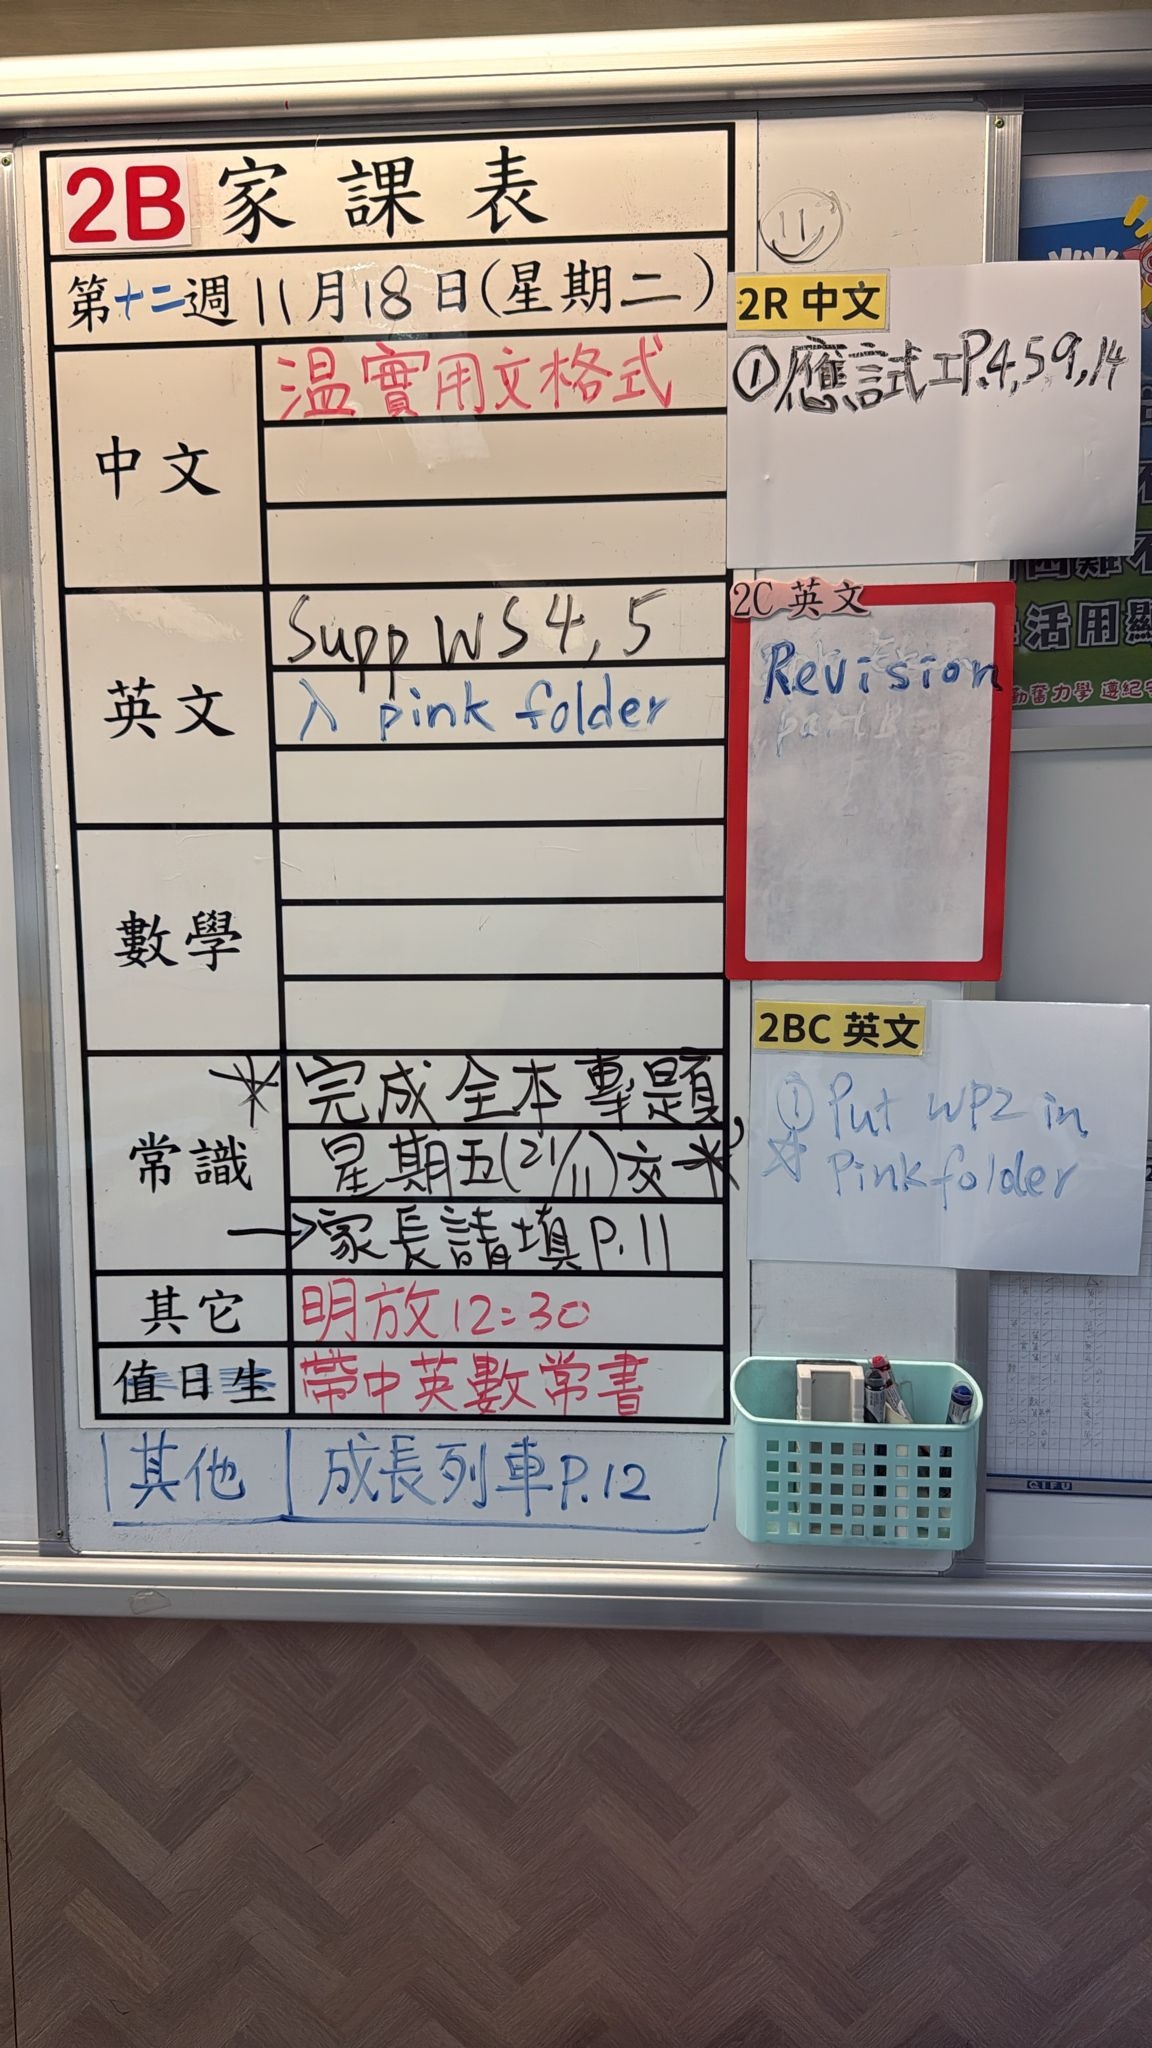 2B 家課表
第十二週 11月18日(星期二)
中文
温實用文格式
英文
Supp WS 4, 5
入 pink folder
數學
常識
* 完成全本專題,
星期五(21/11)交 *
→家長請填P.11
其它
明放12:30
值日生
帶中英數常書
其他
成長列車P.12
2R 中文
①應試工P.4,59,14
2C 英文
Revision
2BC 英文
① Put WP2 in
☆ Pink folder
活用
動奮力學 遵紀守
QIFU